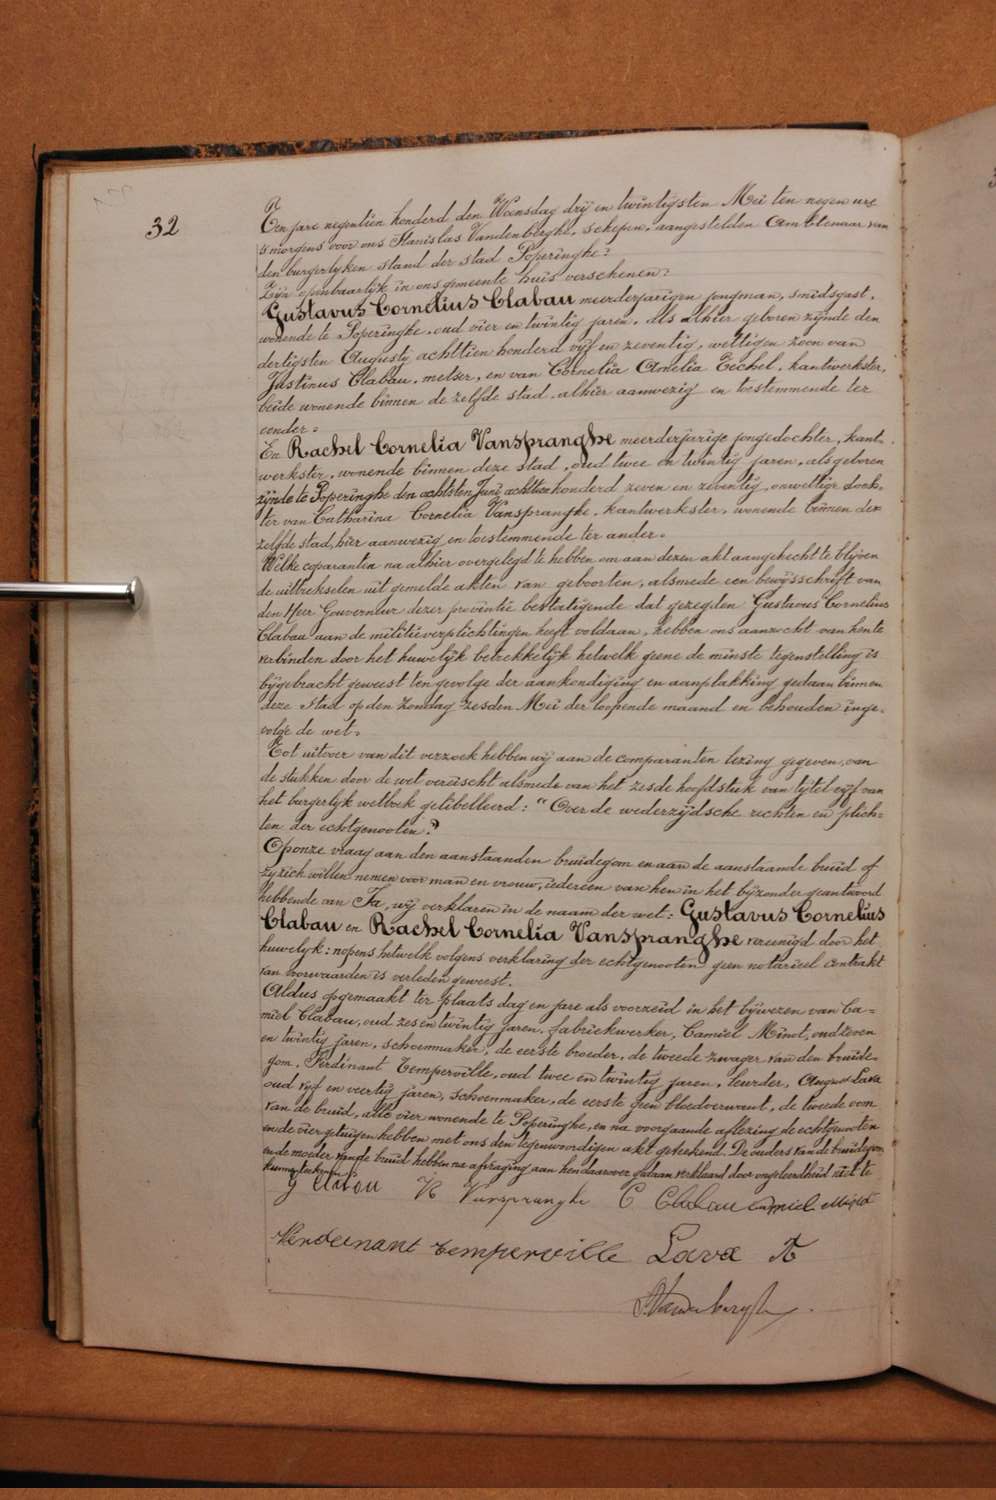 32
Ten jare negentien honderd den Woensdag drij en twintigsten Mei ten negen ure
's morgens voor ons Stanislas Vandenberghe, schepen, aangestelden Ambtenaar van
den burgerlyken stand der stad Poperinghe:
Zijn openbaarlijk in ons gemeente huis verschenen:
Gustavus Cornelius Clabau meerderjarigen jongman, smidsgast,
wonende te Poperinghe, oud vier en twintig jaren, als alhier geboren zijnde den
dertigsten Augusty achttien honderd vijf en zeventig, wettigen zoon van
Justinus Clabau, metser, en van Cornelia Amelia Techel, kantwerkster,
beide wonende binnen de zelfde stad, alhier aanwezig en toestemmende ter
eender=
En Rachel Cornelia Vanspranghe meerderjarige jongedochter, kant-
werkster, wonende binnen deze stad, oud twee en twintig jaren, als geboren
zijnde te Poperinghe den achtsten Juni achttien honderd zeven en zeventig, onwettige doch-
ter van Catharina Cornelia Vanspranghe, kantwerkster, wonende binnen de
zelfde stad, hier aanwezig en toestemmende ter ander.
Welke coparantin na alhier overgelegd te hebben om aan dezen akt aangehecht te blijven
de uittrekselen uit gemelde akten van geboorten, alsmede een bewijsschrift van
den Heer Gouverneur dezer provintie bestatigende dat gezegden Gustavus Cornelius
Clabau aan de militieverplichtingen heeft voldaan, hebben ons aanzocht van hen te
verbinden door het huwelijk betrekkelijk hetwelk geene de minste tegenstelling is
bijgebracht geweest ten gevolge der aankondiging en aanplakking gedaan binnen
deze stad op den Zondag zesden Mei der loopende maand en behouden inge-
volge de wet.
Tot uitvoer van dit verzoek hebben wij aan de comparanten lezing gegeven, van
de stukken door de wet vereischt alsmede van het zesde hoofdstuk van tijtel vijf van
het burgerlijk wetboek getibelleerd: "Over de wederzijdsche rechten en plich-
ten der echtgenooten."
Op onze vraag aan den aanstaanden bruidegom en aan de aanstaande bruid of
zy zich willen nemen voor man en vrouw, iedereen van hen in het bijzonder geantwoord
hebbende van Ja, wij verklaren in de naam der wet: Gustavus Cornelius
Clabau en Rachel Cornelia Vanspranghe vereenigd door het
huwelyk: nopens hetwelk volgens verklaring der echtgenooten geen notarieel contrakt
van voorwaarden is verleden geweest.
Aldus opgemaakt ter plaats dag en jare als voorzeid in het bijwezen van Ca=
miel Clabau, oud zes en twintig jaren, fabriekwerker, Camiel Minot, oud zeven
en twintig jaren, schoenmaker, de eerste broeder, de tweede zwager van den bruide-
gom, Ferdinant Temperville, oud twee en twintig jaren, leurder, August Lava
oud vijf en veertig jaren, schoenmaker, de eerste geen bloedverwant, de tweede oom
van de bruid, alle vier wonende te Poperinghe, en na voorgaande aflezing de echtgenooten
en de vier getuigen hebben met ons den tegenwoordigen akt geteekend. De ouders van de bruidegom
en de moeder van de bruid hebben na afvraging aan hen daarover gedaan verklaard door ongeleerdheid niet te
kunnen teekenen.
G Clabau R Vanspranghe C Clabau Camiel Minot
Verdeinant temperville Lava A
S. Vandenberghe